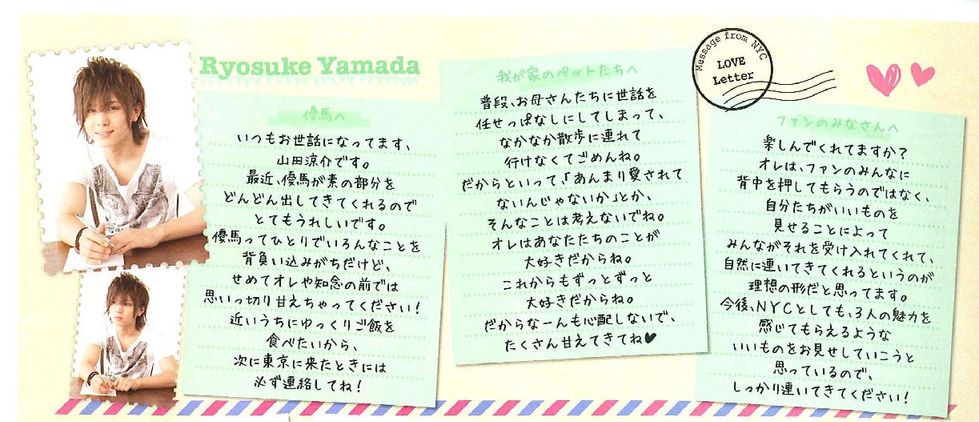 Ryosuke Yamada
優馬へ
いつもお世話になってます、
山田涼介です。
最近、優馬が素の部分を
どんどん出してきてくれるので
とてもうれしいです。
優馬ってひとりでいろんなことを
背負い込みがちだけど、
せめてオレや知念の前では
思いっ切り甘えちゃってください!
近いうちにゆっくりご飯を
食べたいから、
次に東京に来たときには
必ず連絡してね!
我が家のペットたちへ
普段、お母さんたちに世話を
任せっぱなしにしてしまって、
なかなか散歩に連れて
行けなくてごめんね。
だからといって、「あんまり愛されて
ないんじゃないか」とか、
そんなことは考えないでね。
オレはあなたたちのことが
大好きだからね。
これからもずっとずっと
大好きだからね。
だからなーんも心配しないで、
たくさん甘えてきてね♥
Message from NYC
LOVE
Letter
ファンのみなさんへ
楽しんでくれてますか?
オレは、ファンのみんなに
背中を押してもらうのではなく、
自分たちがいいものを
見せることによって
みんながそれを受け入れてくれて、
自然に連いてきてくれるというのが
理想の形だと思ってます。
今後、NYCとしても、3人の魅力を
感じてもらえるような
いいものをお見せしていこうと
思っているので、
しっかり連いてきてください!